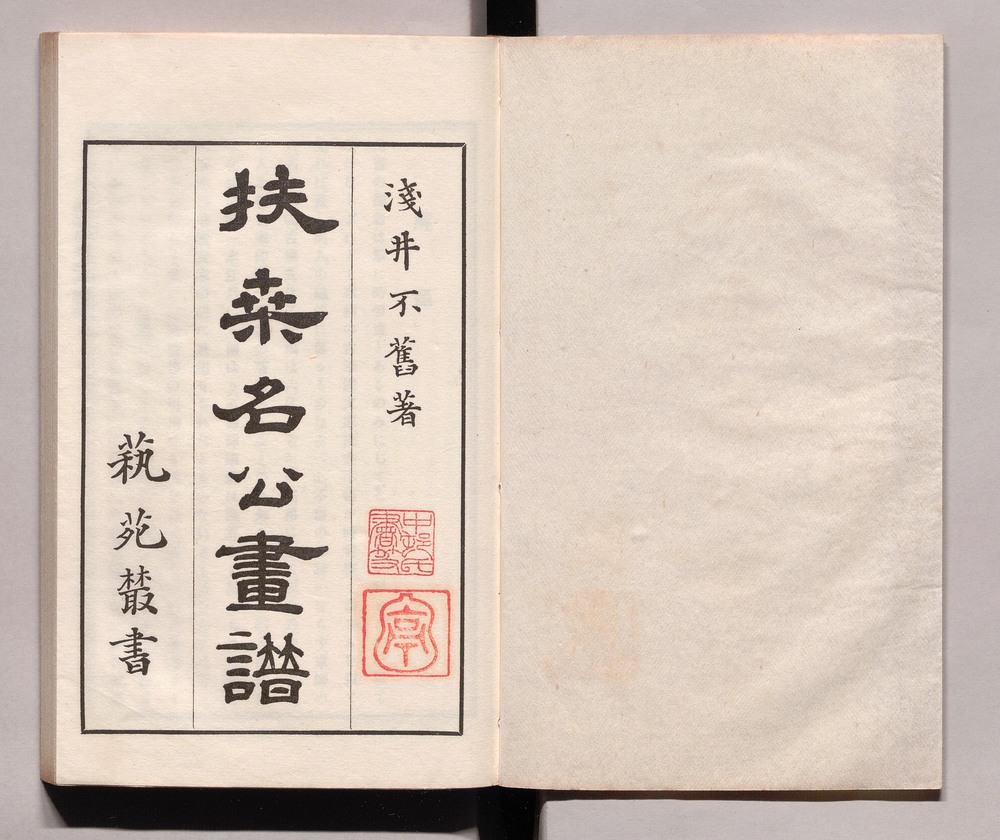 淺井不舊著
扶桒名公畫譜
蓺苑叢書